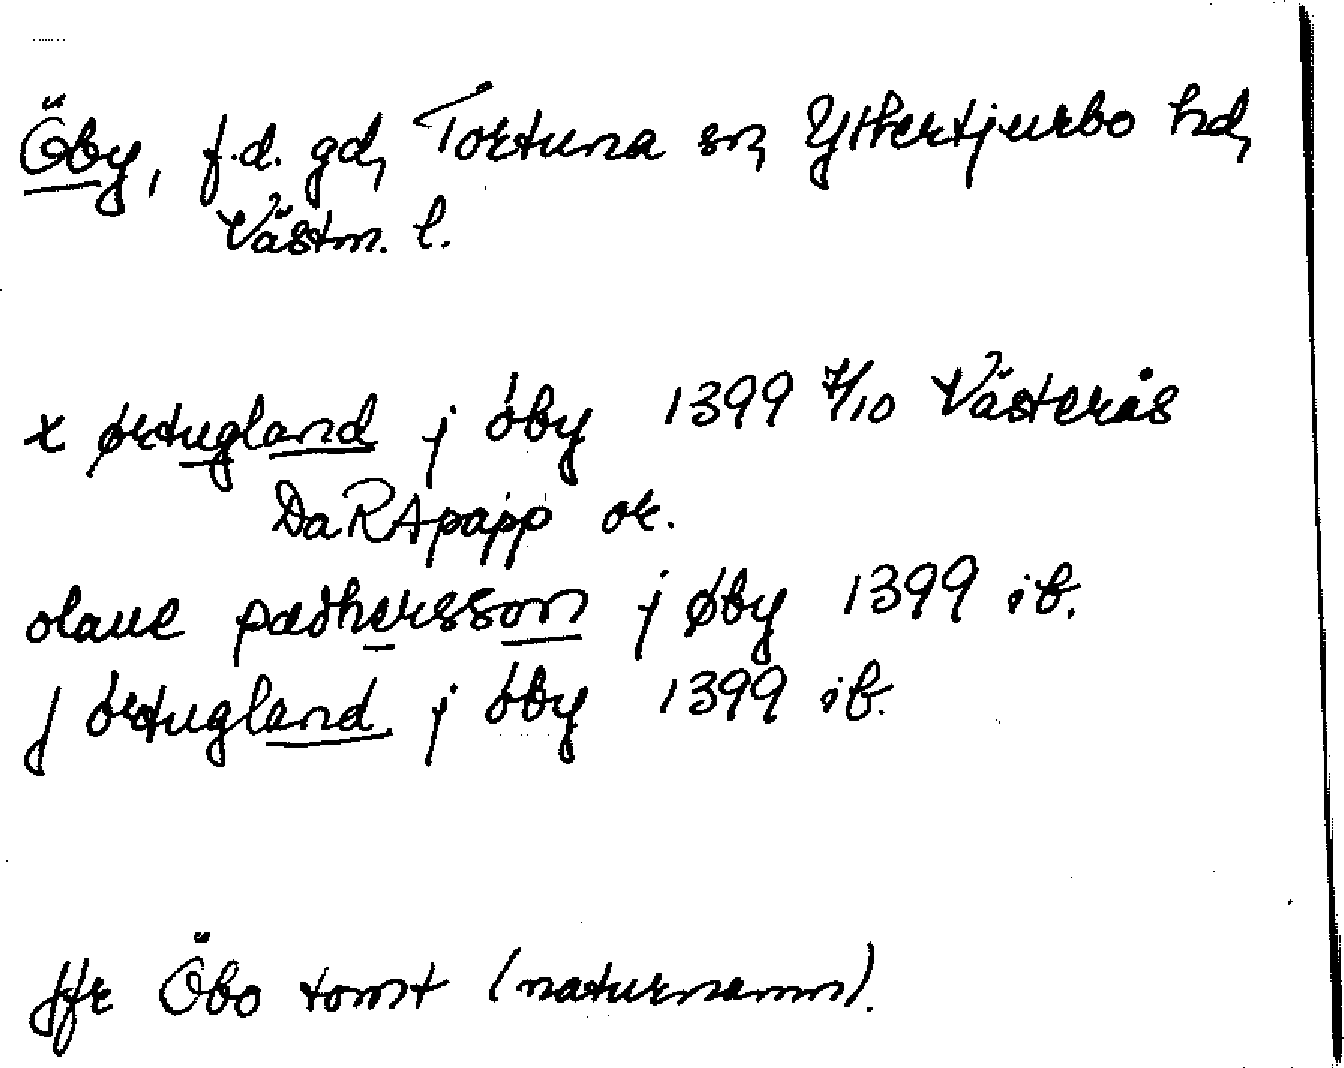 Öby, f.d. gd, Tortuna sn, Yttertjurbo hd,
Västm. l.
x ørtugland j óby 1399 7/10 Västerås
DaRApapp or.
olaue pædhersson j øby 1399 ib.
J örtugland j óby 1399 ib.
Jfr Öbo tomt (naturnamn).